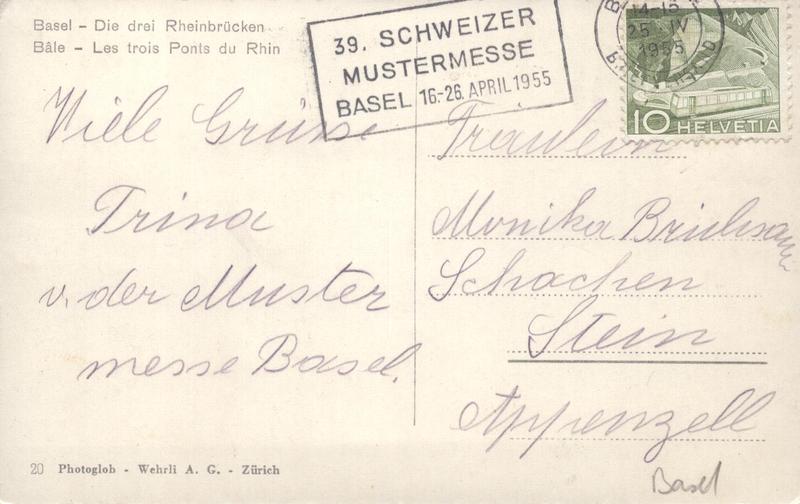 Basel – Die drei Rheinbrücken
Bâle – Les trois Ponts du Rhin
39. SCHWEIZER
MUSTERMESSE
BASEL 16.-26. APRIL 1955
14-15
25 IV
1955
10 HELVETIA
Viele Grüsse
Trina
v. der Muster
messe Basel.
Fräulein
Monika
Schachen
Stein
Appenzell
20 Photoglob - Wehrli A. G. - Zürich
Basel